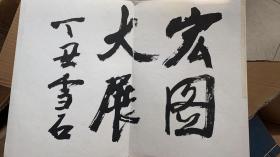 宏图
大展
丁丑雪石